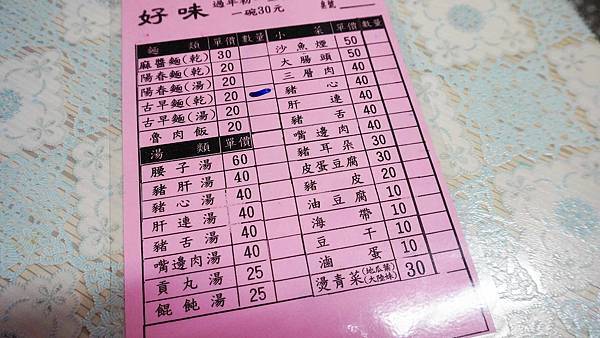 好味
過年初
一碗30元
桌號
麵類 單價 數量
麻醬麵(乾) 30
陽春麵(乾) 20
陽春麵(湯) 20
古早麵(乾) 20
古早麵(湯) 20
魯肉飯 20
湯類 單價
腰子湯 60
豬肝湯 40
豬心湯 40
肝連湯 40
豬舌湯 40
嘴邊肉湯 40
貢丸湯 25
餛飩湯 25
小菜 單價 數量
沙魚煙 50
大腸頭 50
三層肉 40
豬心 40
肝連 40
豬舌 40
嘴邊肉 40
豬耳朵 30
皮蛋豆腐 30
豬皮 20
油豆腐 10
海帶 10
豆干 10
滷蛋 10
燙青菜(地瓜葉)(大陸妹) 30